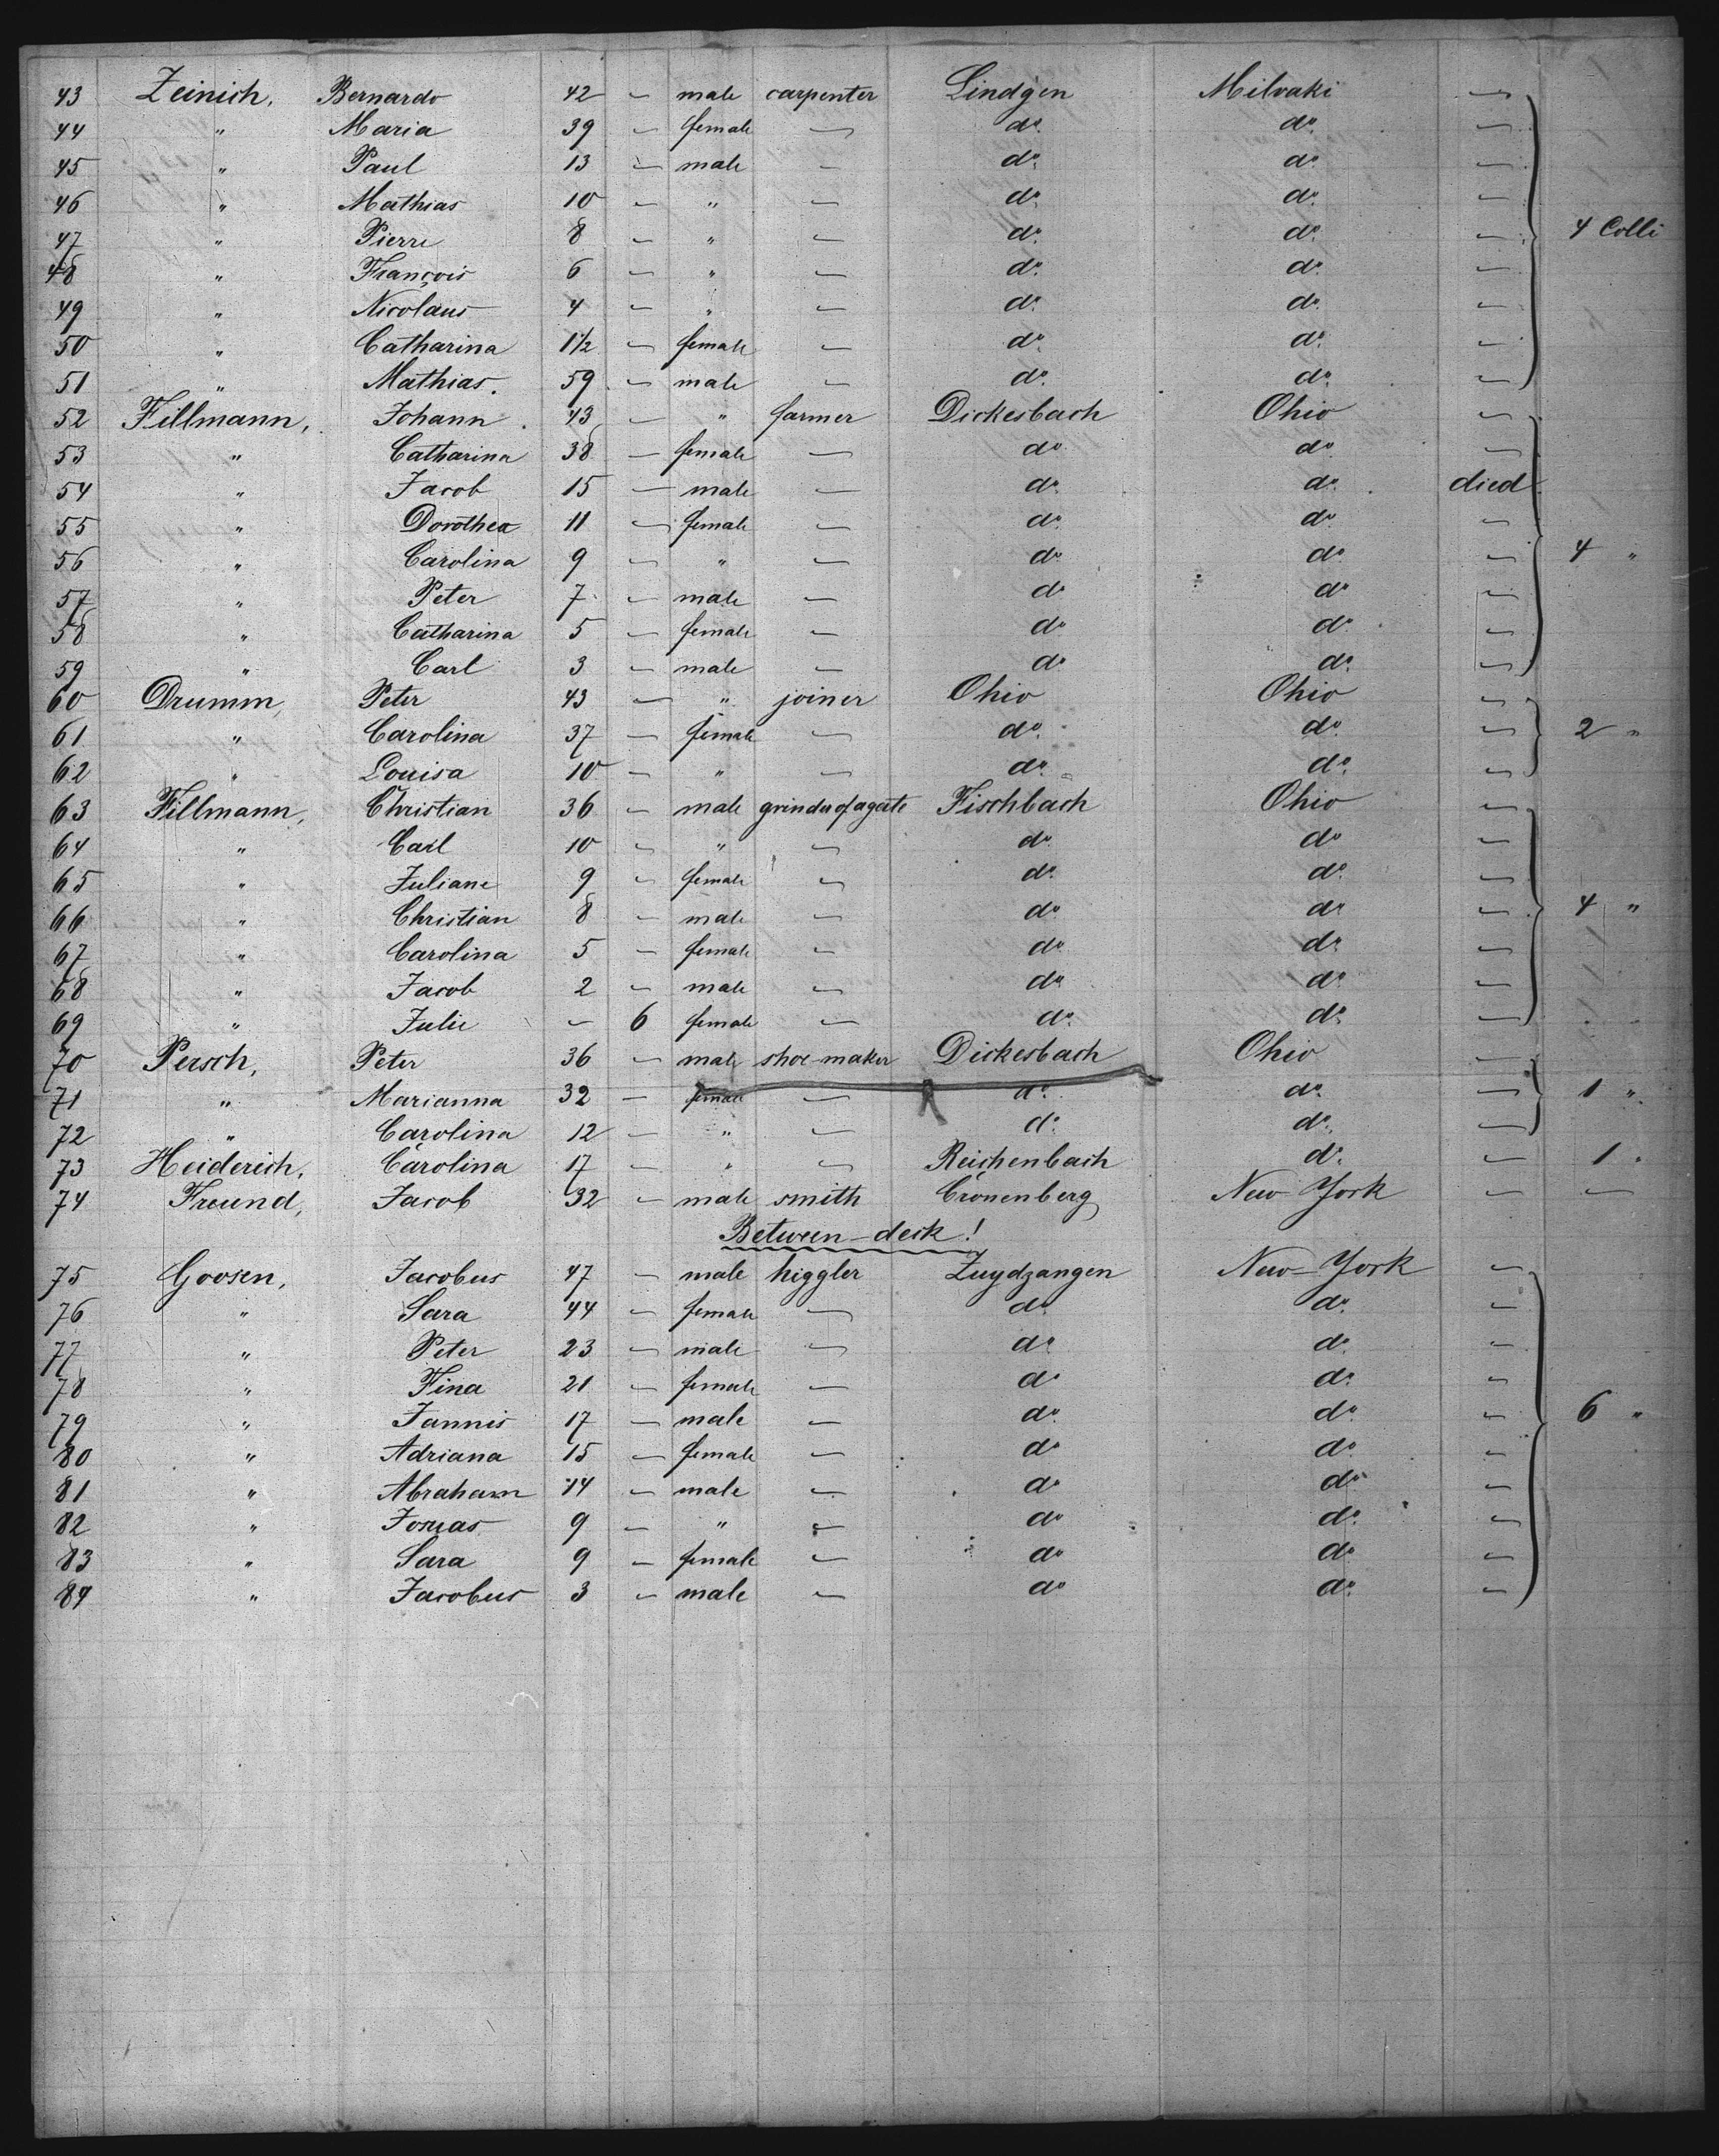 43 Zeinich, Bernardo 42 — male carpenter Lindgen Milvaki —
44 " Maria 39 — female — do. do. —
45 " Paul 13 — male — do. do. —
46 " Mathias 10 — " — do. do. —
47 " Pierre 8 — " — do. do. — 4 Colli
48 " François 6 — " — do. do. —
49 " Nicolaus 4 — " — do. do. —
50 " Catharina 1½ — female — do. do. —
51 " Mathias. 59 — male — do. do. —
52 Fillmann, Johann. 43 — " farmer Dickesbach Ohio —
53 " Catharina 38 — female — do. do. —
54 " Jacob 15 — male — do. do. died
55 " Dorothea 11 — female — do. do. —
56 " Carolina 9 — " — do. do. — 4 "
57 " Peter 7 — male — do do —
58 " Catharina 5 — female — do do. —
59 " Carl 3 — male — do do. —
60 Drumm, Peter 43 — " joiner Ohio Ohio —
61 " Carolina 37 — female — do. do. — 2 "
62 " Louisa 10 — " — do. do. —
63 Fillmann, Christian 36 — male grinder of agate Fischbach Ohio —
64 " Carl 10 — " — do. do —
65 " Juliane 9 — female — do. do. —
66 " Christian 8 — male — do do — 4 "
67 " Carolina 5 — female — do do. —
68 " Jacob 2 — male — do do. —
69 " Julie — 6 female — do. do. —
70 Persch, Peter 36 — male shoe-maker Dickesbach Ohio —
71 " Marianna 32 — female — do. do. — 1 "
72 " Carolina 12 — " — do. do. —
73 Heiderich, Carolina 17 — " — Reichenbach do. — 1 "
74 Freund, Jacob 32 — male smith Cronenberg New York — —
Between-deck!
75 Goosen, Jacobus 47 — male higgler Zuydzangen New-York —
76 " Sara 44 — female — do. do. —
77 " Peter 23 — male — do. do. —
78 " Fina 21 — female — do do. —
79 " Jannis 17 — male — do. do. — 6 "
80 " Adriana 15 — female — do do. —
81 " Abraham 14 — male — do do —
82 " Josias 9 — " — do do. —
83 " Sara 9 — female — do do. —
84 " Jacobus 3 — male — do do. —